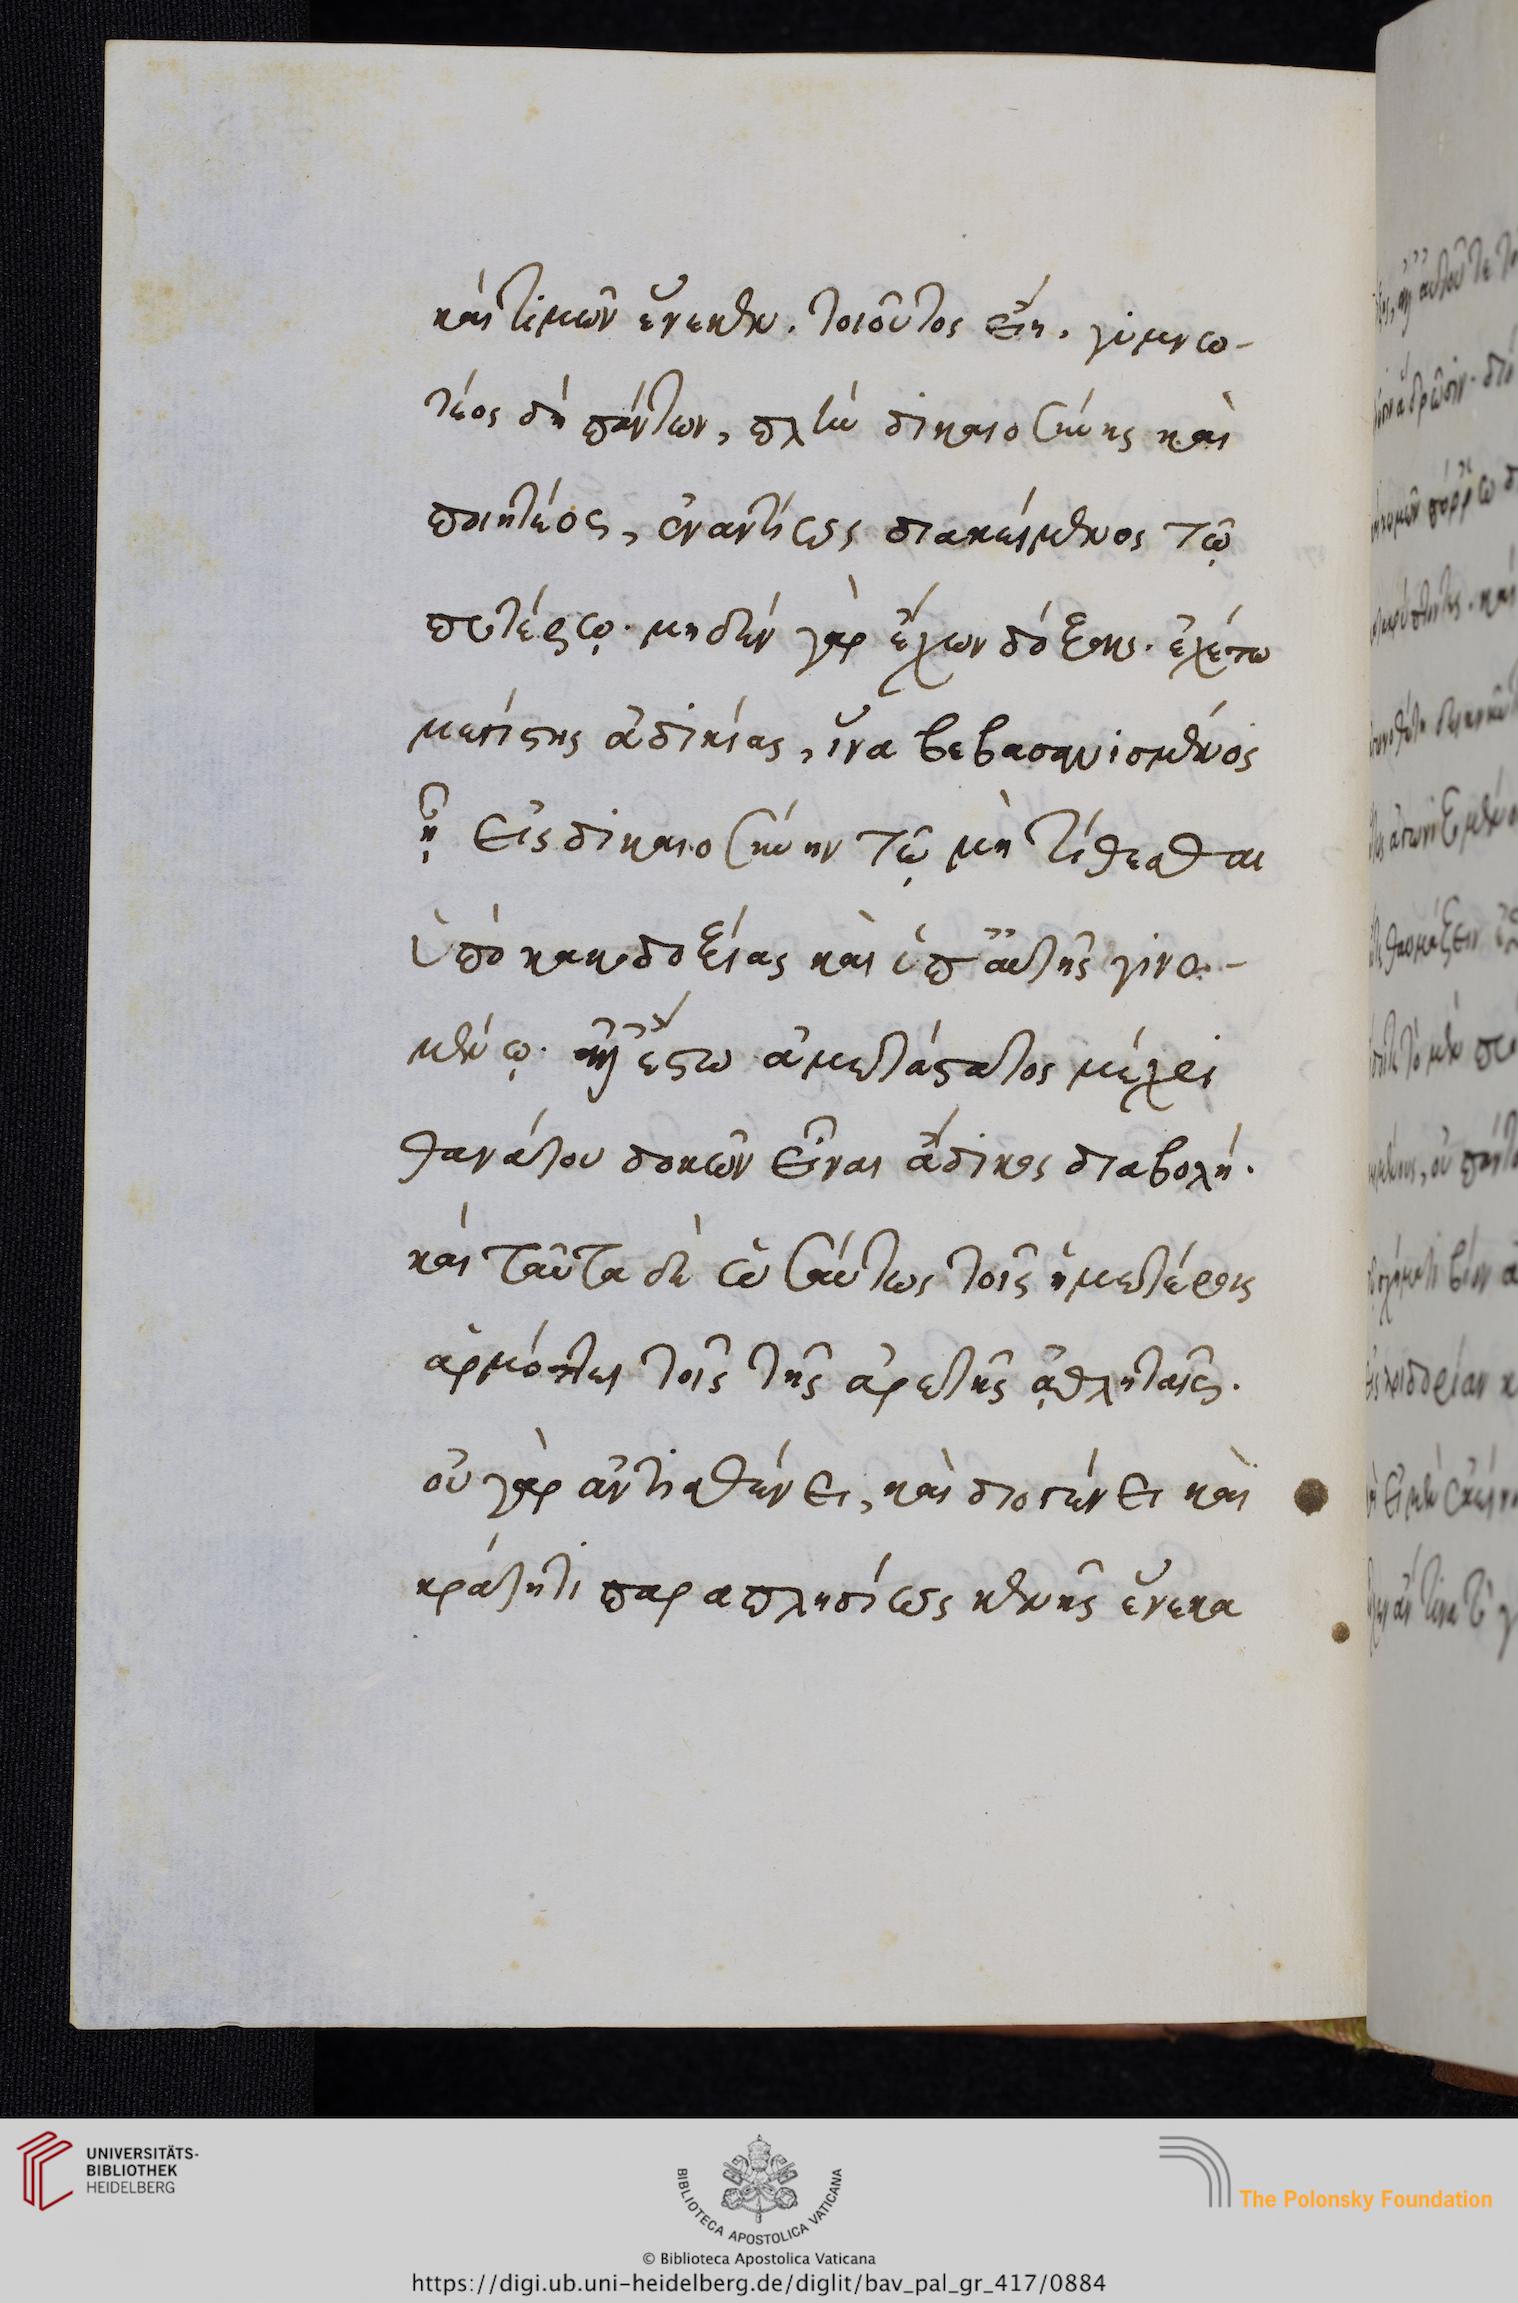 καὶ τιμῶν ἕνεκεν. τοιοῦτος εἴη. γυμνω-
τέος δὴ πάντων, πλὴν δικαιοσύνης καὶ
ποιητέος, ἐναντίως διακείμενος τῷ
προτέρῳ. μηδὲν γὰρ ἔχων δόξαν. ἐχέτω
μεγίστης ἀδικίας, ἵνα βεβασανισμένος
ᾖ εἰς δικαιοσύνην τῷ μὴ τέγγεσθαι
ὑπὸ κακοδοξίας καὶ ὑπ' αὐτῆς γινο-
μένῳ. ἀλλ' ἔστω ἀμετάστατος μέχρι
θανάτου δοκῶν εἶναι ἄδικος διαβολή.
καὶ ταῦτα δὲ ὡσαύτως τοῖς ἡμετέροις
ἁρμόττει τοῖς τῆς ἀρετῆς ἀθληταῖς.
οὐ γὰρ Ἀντισθένει, καὶ Διογένει καὶ
Κράτητι παραπλησίως κενῆς ἕνεκα
UNIVERSITÄTS-
BIBLIOTHEK
HEIDELBERG
BIBLIOTECA APOSTOLICA VATICANA
The Polonsky Foundation
© Biblioteca Apostolica Vaticana
https://digi.ub.uni-heidelberg.de/diglit/bav_pal_gr_417/0884